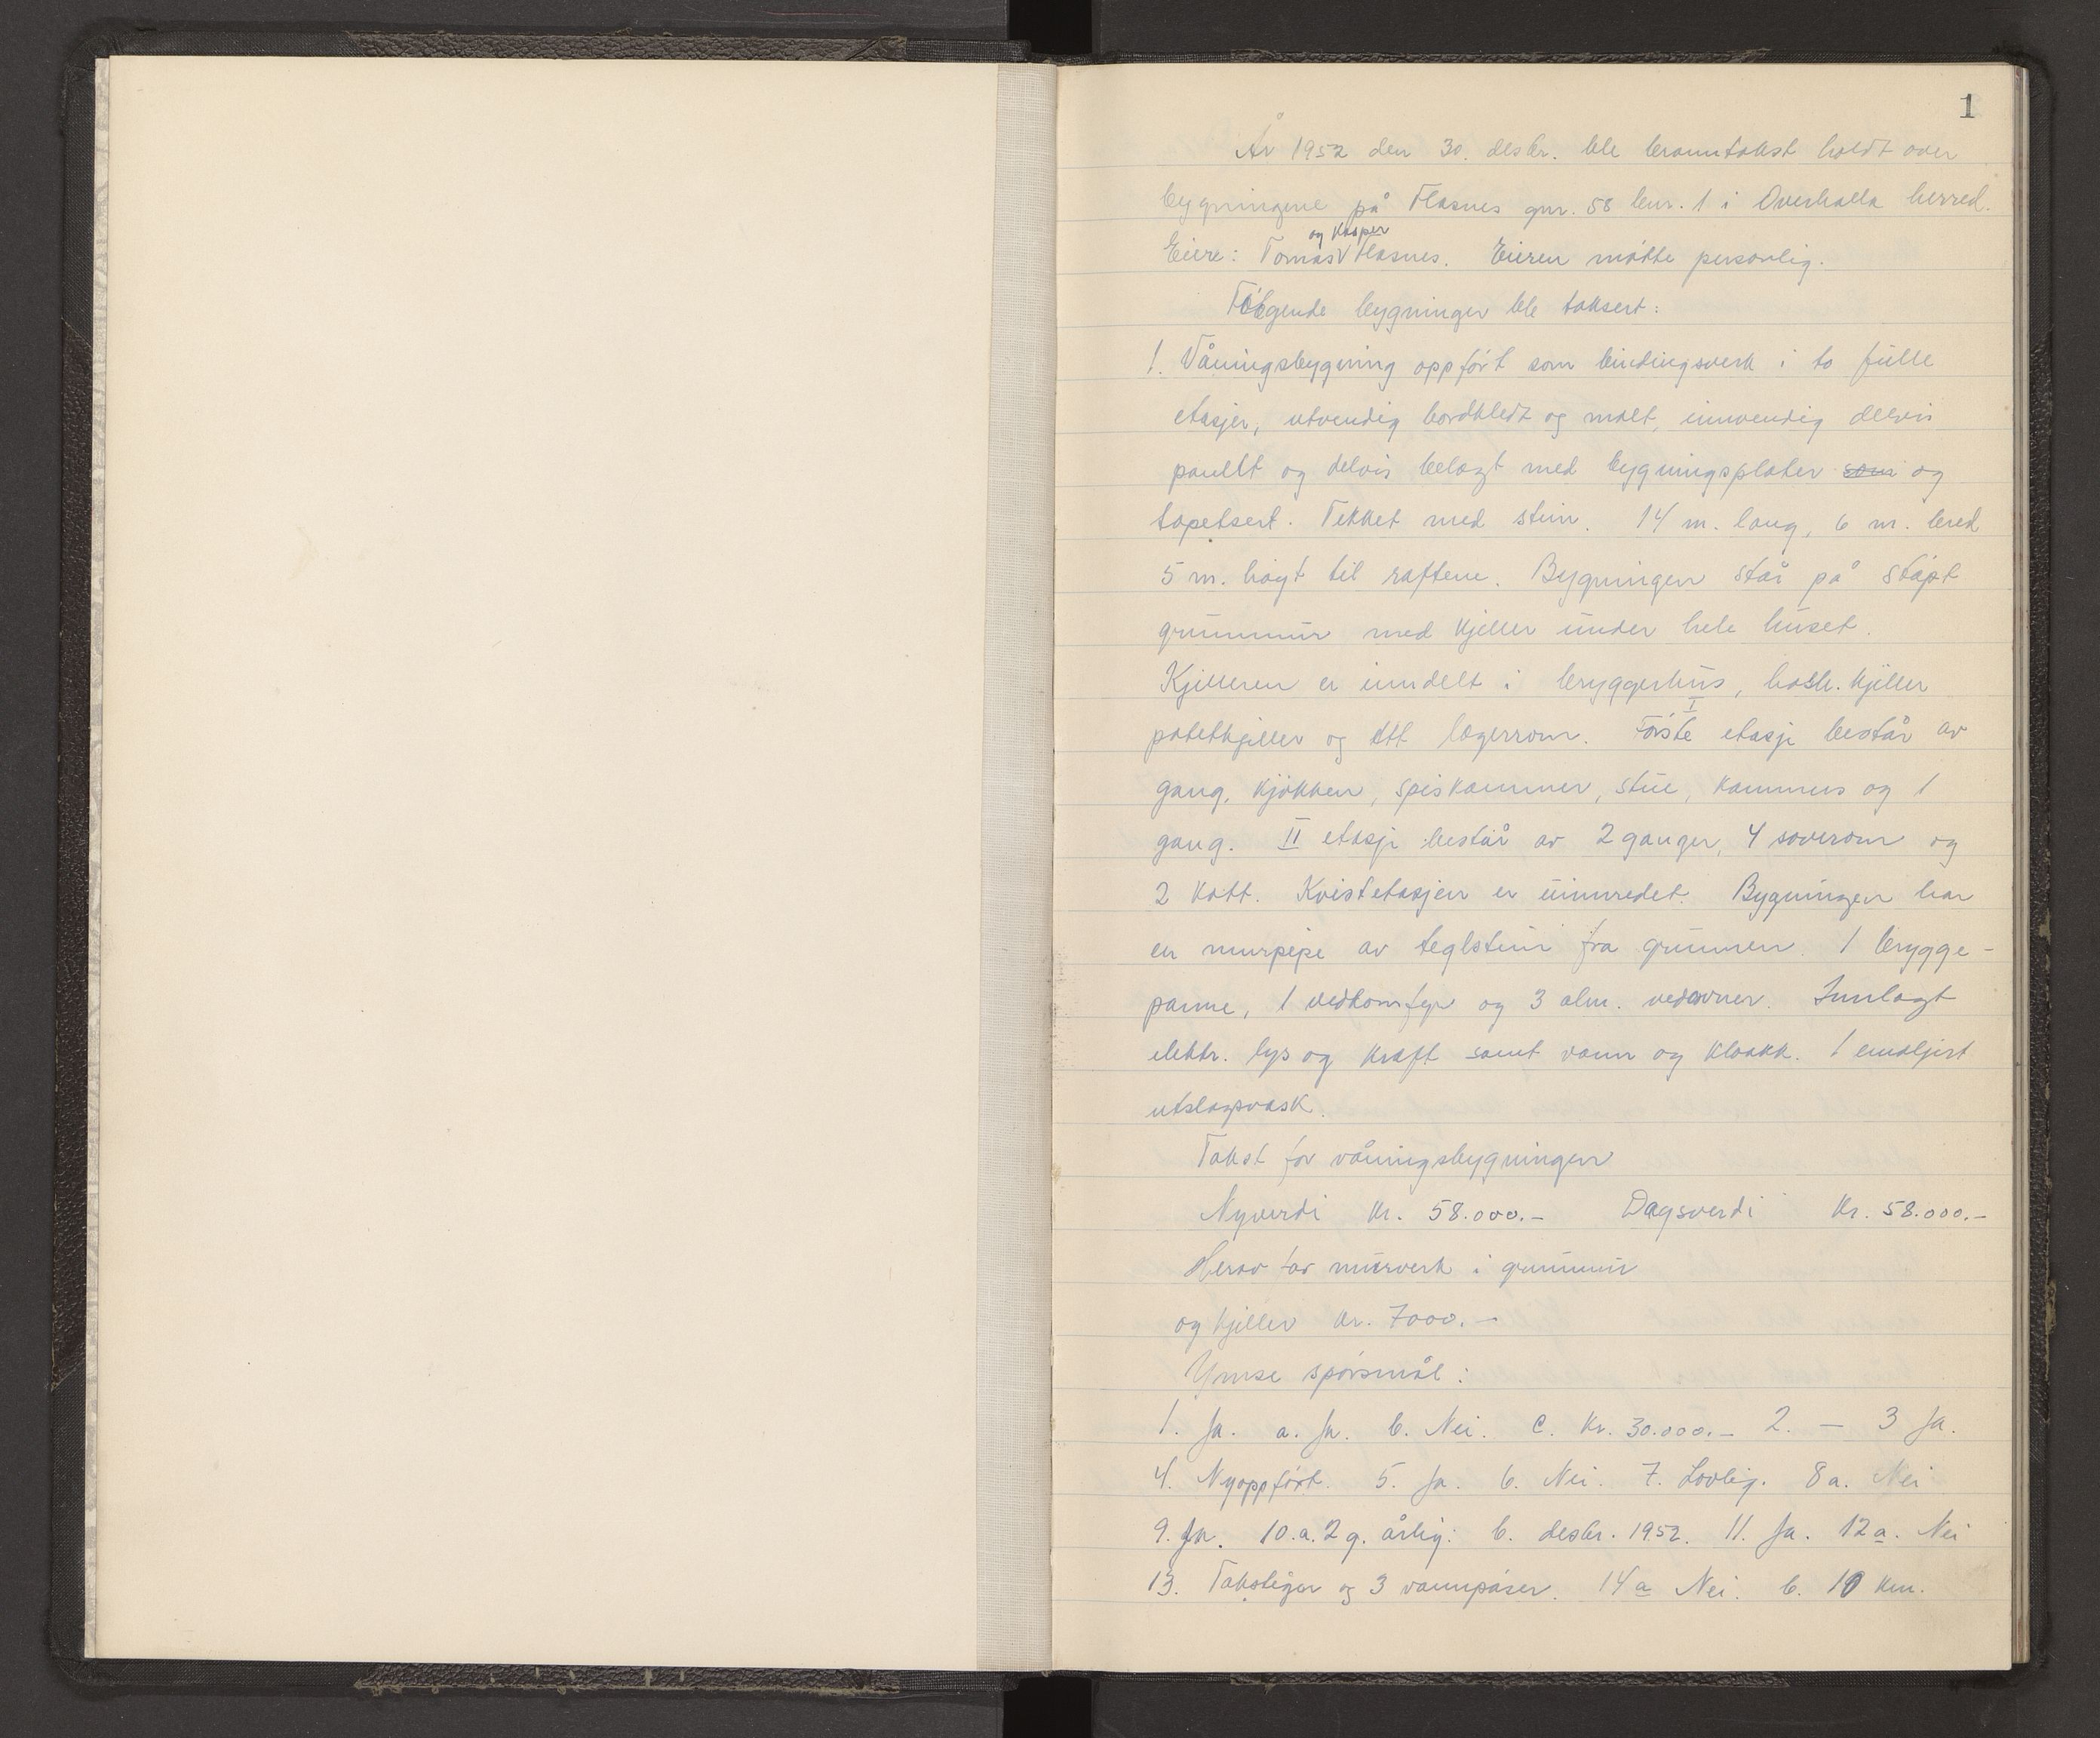 1
År 1952 den 30. desbr. ble branntakst holdt over
bygningene på Flasnes gnr. 58 bnr. 1 i Overhalla herred.
og Kasper
Eiere: Tomas V Flasnes. Eieren møtte personlig.
Følgende bygninger ble taksert:
1. Våningsbygning oppført som bindingsverk i to fulle
etasjer, utvendig bordkledt og malt, innvendig delvis
panelt og delvis belagt med bygningsplater som og
tapetsert. Tekket med stein. 14 m. lang, 6 m. bred
5 m. høgt til raftene. Bygningen står på støpt
grunnmur med kjeller under hele huset.
Kjelleren er inndelt i bryggerhus, hush. kjeller
potetkjeller og ett lagerrom. Første I etasje består av
gang, kjøkken, spiskammer, stue, kammers og 1
gang. II etasje består av 2 ganger, 4 soverom og
2 kott. Kvistetasjen er uinnredet. Bygningen har
en murpipe av teglstein fra grunnen. 1 brygge-
panne, 1 vedkomfyr og 3 alm. vedovner. Innlagt
elektr. lys og kraft samt vann og kloakk. 1 emaljert
utslagsvask.
Takst for våningsbygningen
Nyverdi kr. 58.000.- Dagsverdi kr. 58.000.-
Herav for murverk i grunnmur
og kjeller kr. 7000.-
Ymse spørsmål:
1. Ja. a. Ja. b. Nei. c. kr. 30.000.- 2. - 3 Ja.
4. Nyoppført. 5. Ja. 6. Nei. 7. Lovlig. 8a. Nei
9. Ja. 10.a. 2 g. årlig: b. desbr. 1952. 11. Ja. 12a. Nei
13. Takstiger og 3 vannpøser. 14a Nei. b. 10 km.